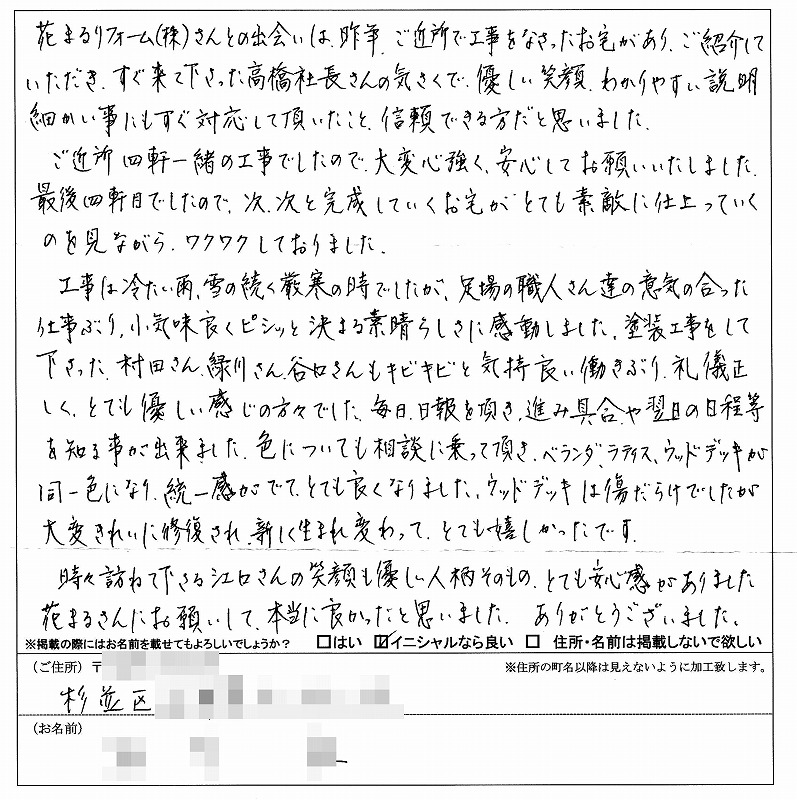 花まるリフォーム(株)さんとの出会いは、昨年、ご近所で工事をなさったお宅があり、ご紹介して
いただき、すぐ来て下さった高橋社長さんの気さくで、優しい笑顔、わかりやすい説明
細かい事にもすぐ対応して頂いたこと、信頼できる方だと思いました。
ご近所四軒一緒の工事でしたので、大変心強く、安心してお願いいたしました。
最後四軒目でしたので、次、次と完成していくお宅がとても素敵に仕上っていく
のを見ながら、ワクワクしておりました。
工事は冷たい雨、雪の続く厳寒の時でしたが、足場の職人さん達の意気の合った
仕事ぶり、小気味良くピシッと決まる素晴らしさに感動しました。塗装工事をして
下さった、村田さん、緑川さん、谷口さんもキビキビと気持良い働きぶり、礼儀正
しく、とても優しい感じの方々でした。毎日、日報を頂き、進み具合や翌日の日程等
を知る事が出来ました。色についても相談に乗って頂き、ベランダ、ラティス、ウッドデッキが
同一色になり、統一感がでて、とても良くなりました。ウッドデッキは傷だらけでしたが
大変きれいに修復され、新しく生まれ変わって、とても嬉しかったです。
時々訪ねて下さる江口さんの笑顔も優しい人柄そのもの、とても安心感がありました
花まるさんにお願いして、本当に良かったと思いました。 ありがとうございました。
※掲載の際にはお名前を載せてもよろしいでしょうか? □はい ☑イニシャルなら良い □ 住所・名前は掲載しないで欲しい
(ご住所) 〒 ※住所の町名以降は見えないように加工致します。
杉並区
(お名前)